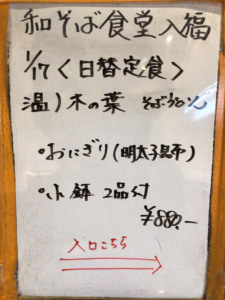 和そば食堂入福
1/17〈日替定食〉
温)木の葉 そばorうどん
・おにぎり(明太子昆布)
・小鉢 2品付
¥880.-
入口こちら